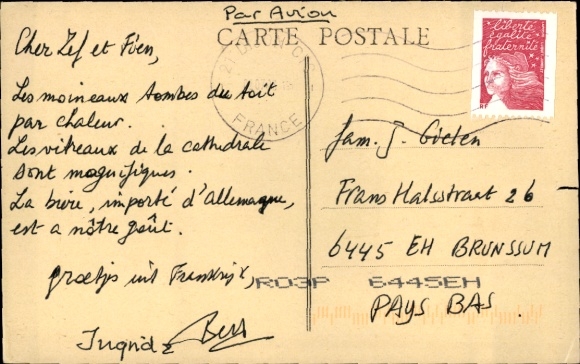 Par Avion
CARTE POSTALE
liberté
égalité
fraternité
FRANCE
Cher Zef et Fien,
Les moineaux tombes du toit
par chaleur.
Les vitreaux de la cathedrale
sont magnifiques.
La bière, importé d'Allemagne,
est a nôtre goût.
groetjes uit Frankrijk,
Ingrid &
Fam. J. Gielen
Frans Halsstraat 26
6445 EH BRUNSSUM
R03P 6445EH
PAYS BAS